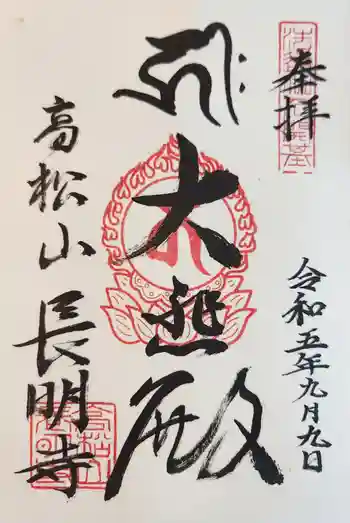 奉拝
令和五年九月九日
大悲殿
高松山
長明寺